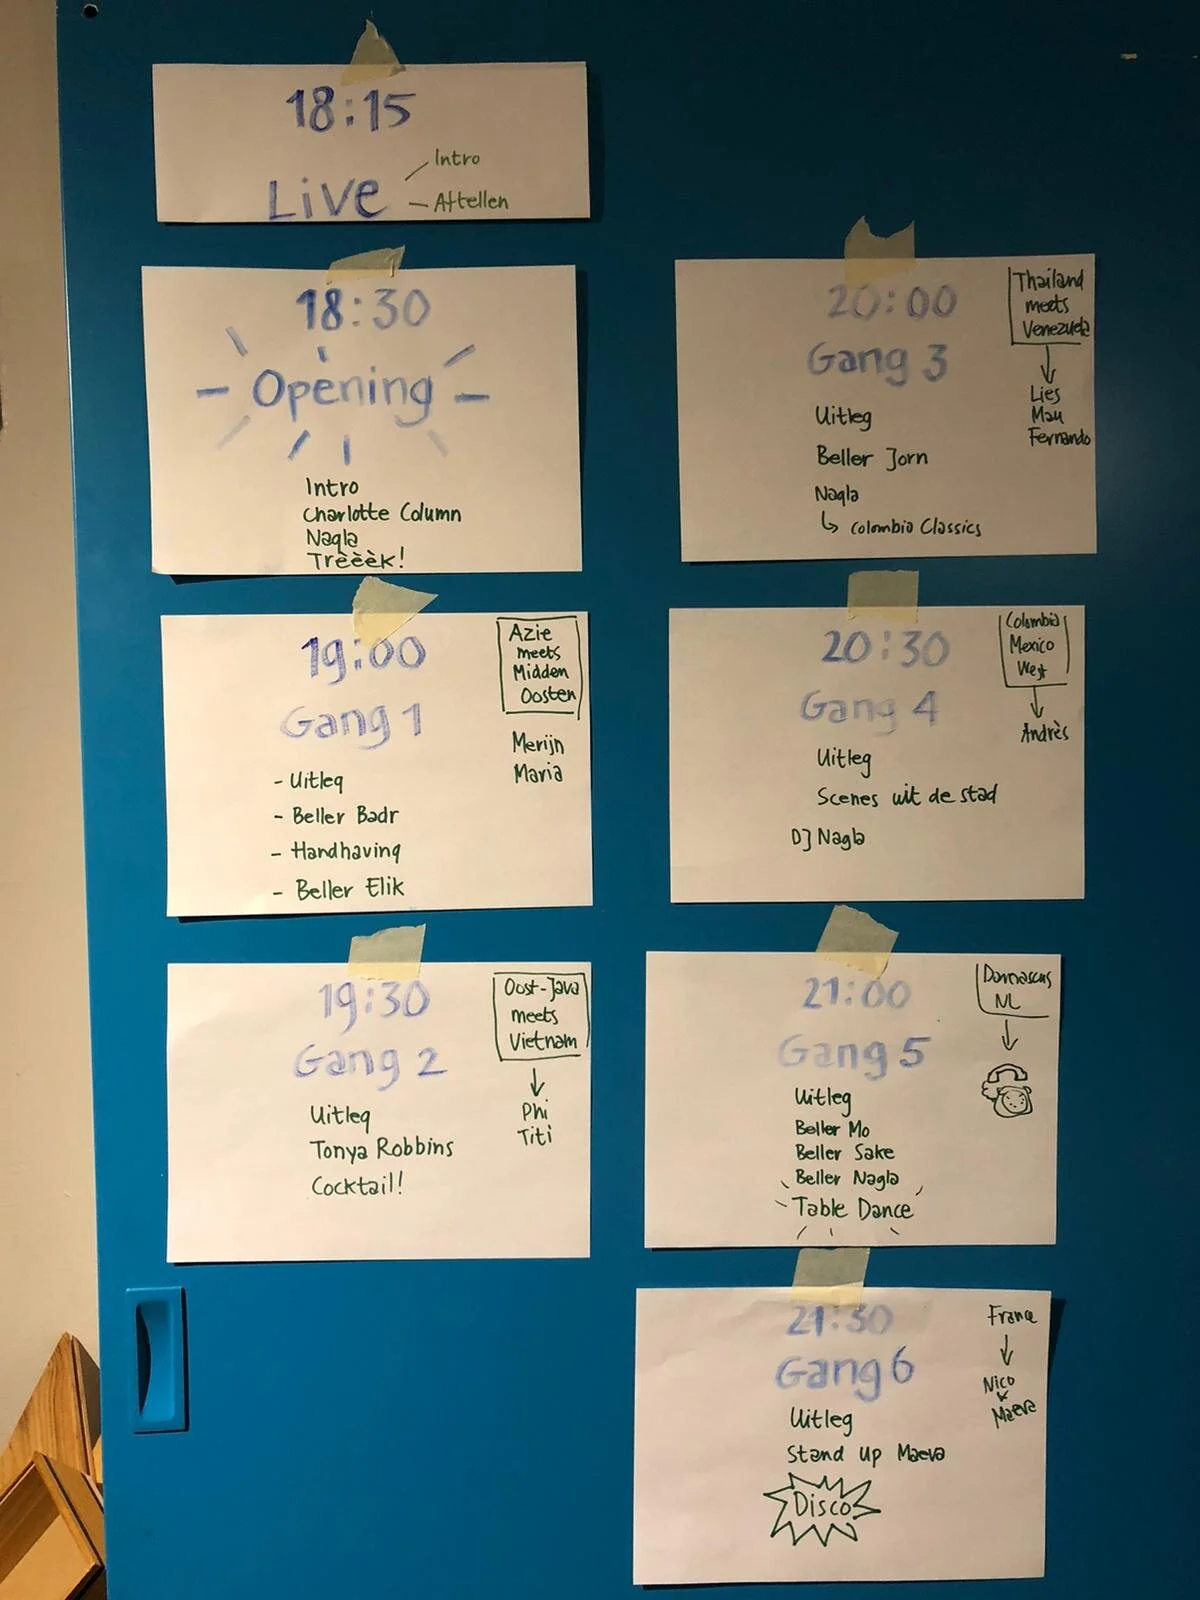 18:15
Live
Intro
Aftellen
18:30
Opening
Intro
Charlotte Column
Nagla
Trèèèk!
19:00
Gang 1
- Uitleg
- Beller Badr
- Handhaving
- Beller Elik
Azie
meets
Midden
Oosten
Merijn
Maria
19:30
Gang 2
Uitleg
Tonya Robbins
Cocktail!
Oost-Java
meets
Vietnam
Phi
Titi
20:00
Gang 3
Uitleg
Beller Jorn
Nagla
Colombia Classics
Thailand
meets
Venezuela
Lies
Mau
Fernando
20:30
Gang 4
Uitleg
Scenes uit de stad
DJ Nagla
Colombia
Mexico
West
Andrès
21:00
Gang 5
Uitleg
Beller Mo
Beller Sake
Beller Nagla
Table Dance
Damascus
NL
21:30
Gang 6
Uitleg
Stand Up Maeva
Disco
France
Nico
&
Maeva